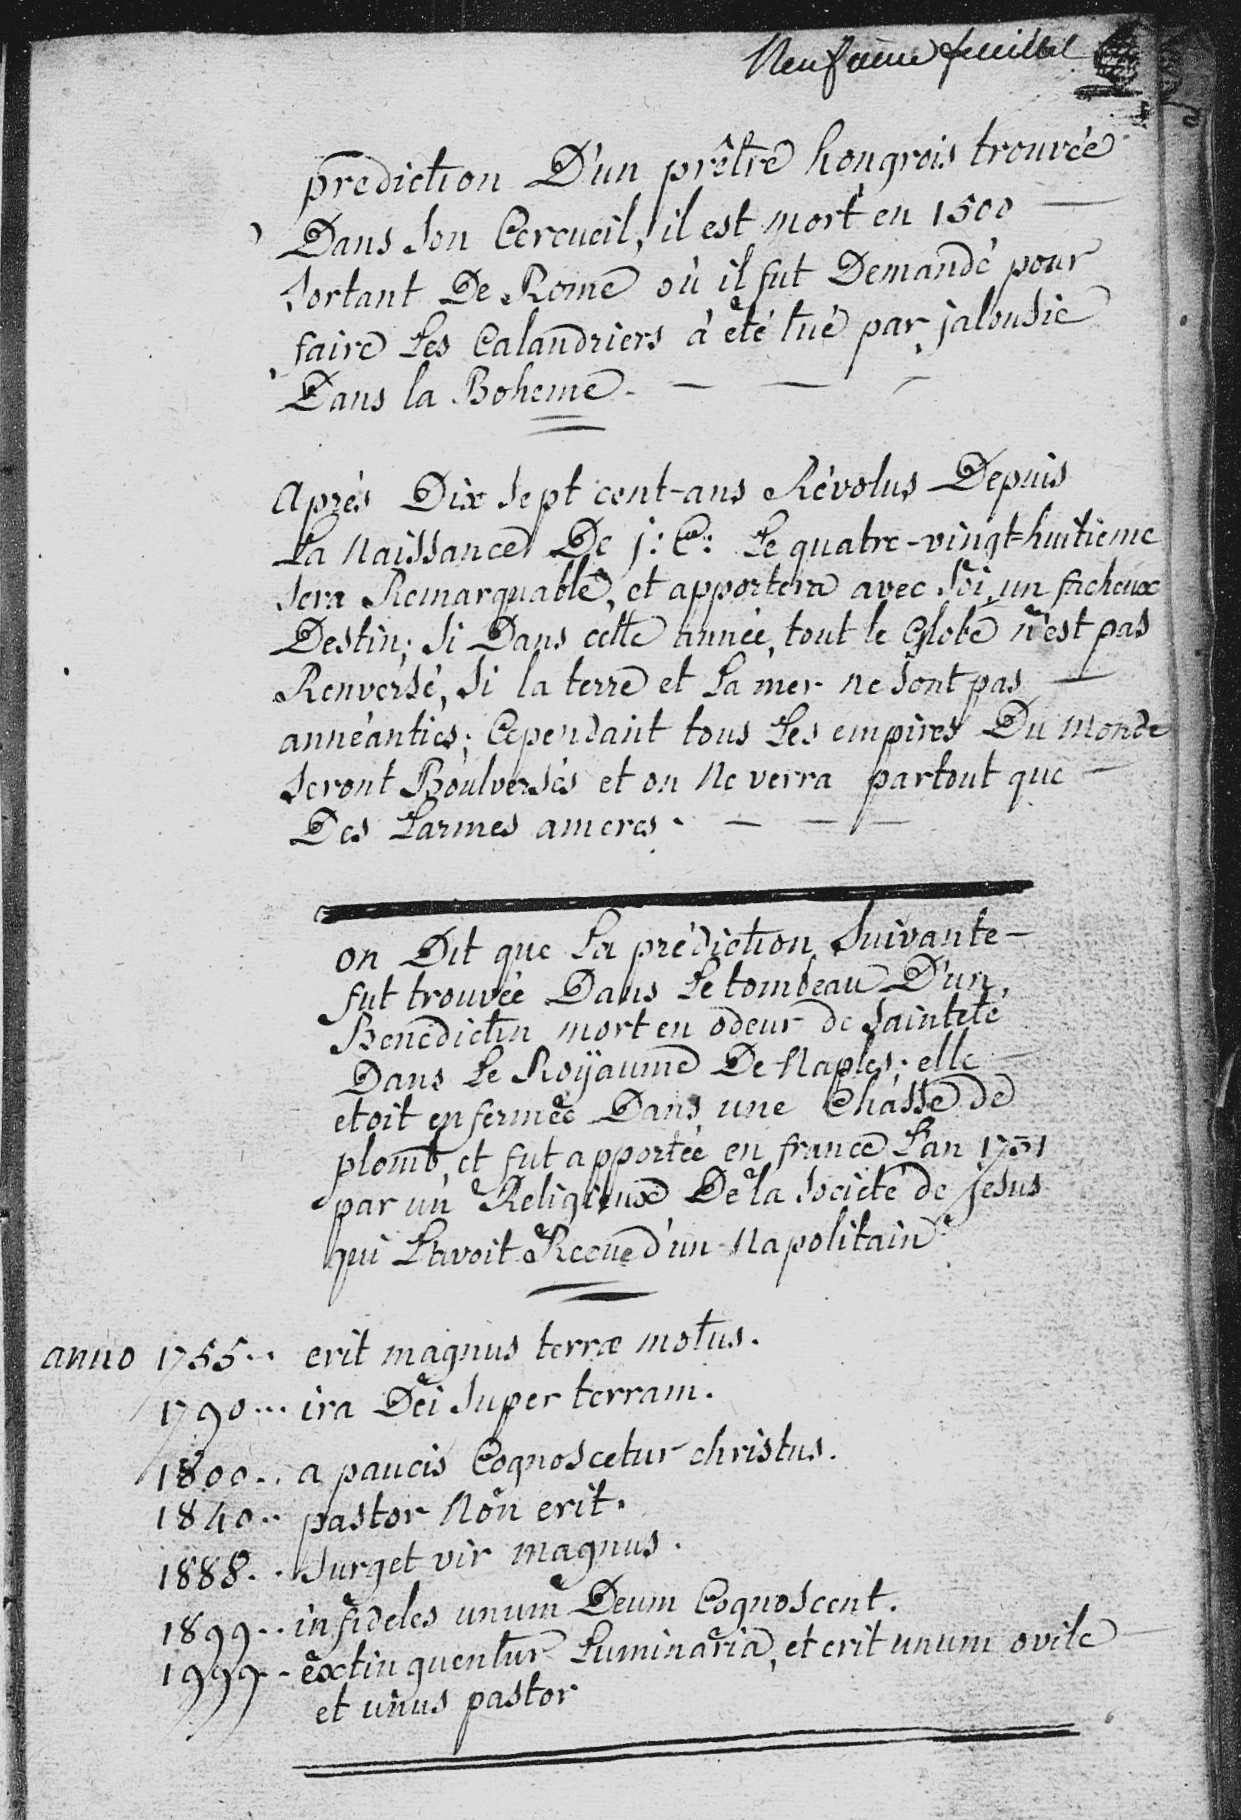 Neufvieme feuillet
prediction D'un prêtre hongrois trouvée
Dans Son Cercueil, il est mort en 1500
Sortant De Rome où il fut Demandé pour
faire Les Calandriers à été tué par jalousie
Dans la Boheme.
Aprés Dix Sept cent-ans Révolus Depuis
La Naissance De j: C: Le quatre-vingt-huitieme
Sera Remarquable, et apportera avec Soi, un facheux
Destin; Si Dans cette année, tout le Globe n'est pas
Renversé, Si la terre et La mer ne Sont pas
annéanties; Cependant tous Les empires Du Monde
Seront Boulversés et on Ne verra partout que
Des Larmes ameres.
on Dit que La prédiction Suivante
fut trouvée Dans Le tombeau D'un
Benedictin mort en odeur de Sainteté
Dans Le Royaume De Naples; elle
etoit enfermée Dans une Châsse de
plomb, et fut apportée en france L'an 1731
par un Religieux De la Societé de jesus
qui L'avoit Recue d'un Napolitain
anno 1755.. erit magnus terræ motus.
1790... ira Dei Super terram.
1800.. a paucis Cognoscetur christus.
1840.. pastor Non erit.
1888.. Surget vir magnus.
1899.. infideles unum Deum Cognoscent.
1999.. extinguentur Luminaria, et erit unum ovile
et unus pastor